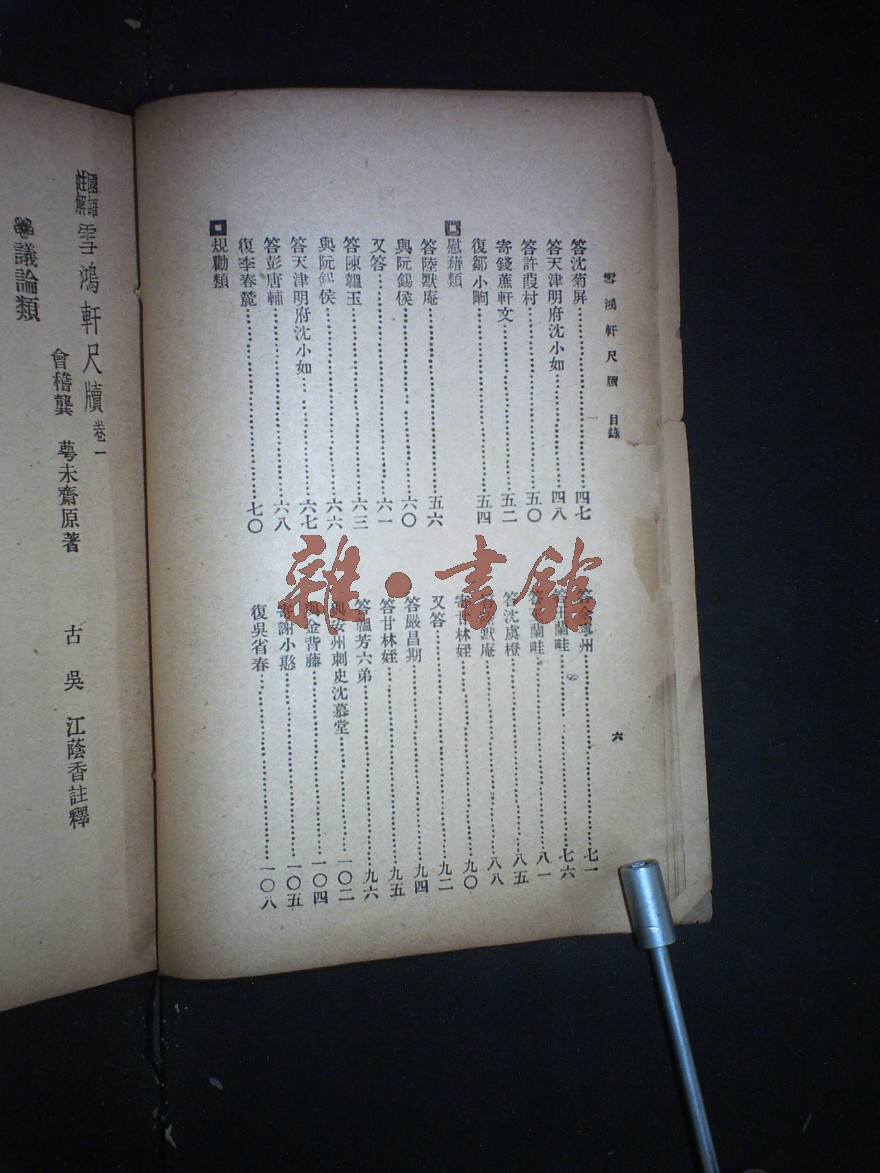 雪鴻軒尺牘 目錄
六
答沈菊屏 四七
答天津明府沈小如 四八
答許葭村 五〇
寄錢蕉軒文 五二
復鄒小眴 五四
慰藉類
答陸默庵 五六
與阮錫侯 六〇
又答 六一
答陳韞玉 六三
與阮錫侯 六六
答天津明府沈小如 六七
答彭唐輔 六八
復李春麓 七〇
規勸類
州 七一
蘭畦 七六
蘭畦 八一
答沈虞橙 八五
默庵 八八
寄甘林姪 九〇
又答 九二
答嚴昌期 九四
答甘林姪 九五
答韞芳六弟 九六
與安州刺史沈慕堂 一〇二
與金背藤 一〇四
寄謝小愍 一〇五
復吳省春 一〇八
國語註解 雪鴻軒尺牘 卷一
會稽龔 萼未齋原著 古吳 江蔭香註釋
議論類
雜·書館